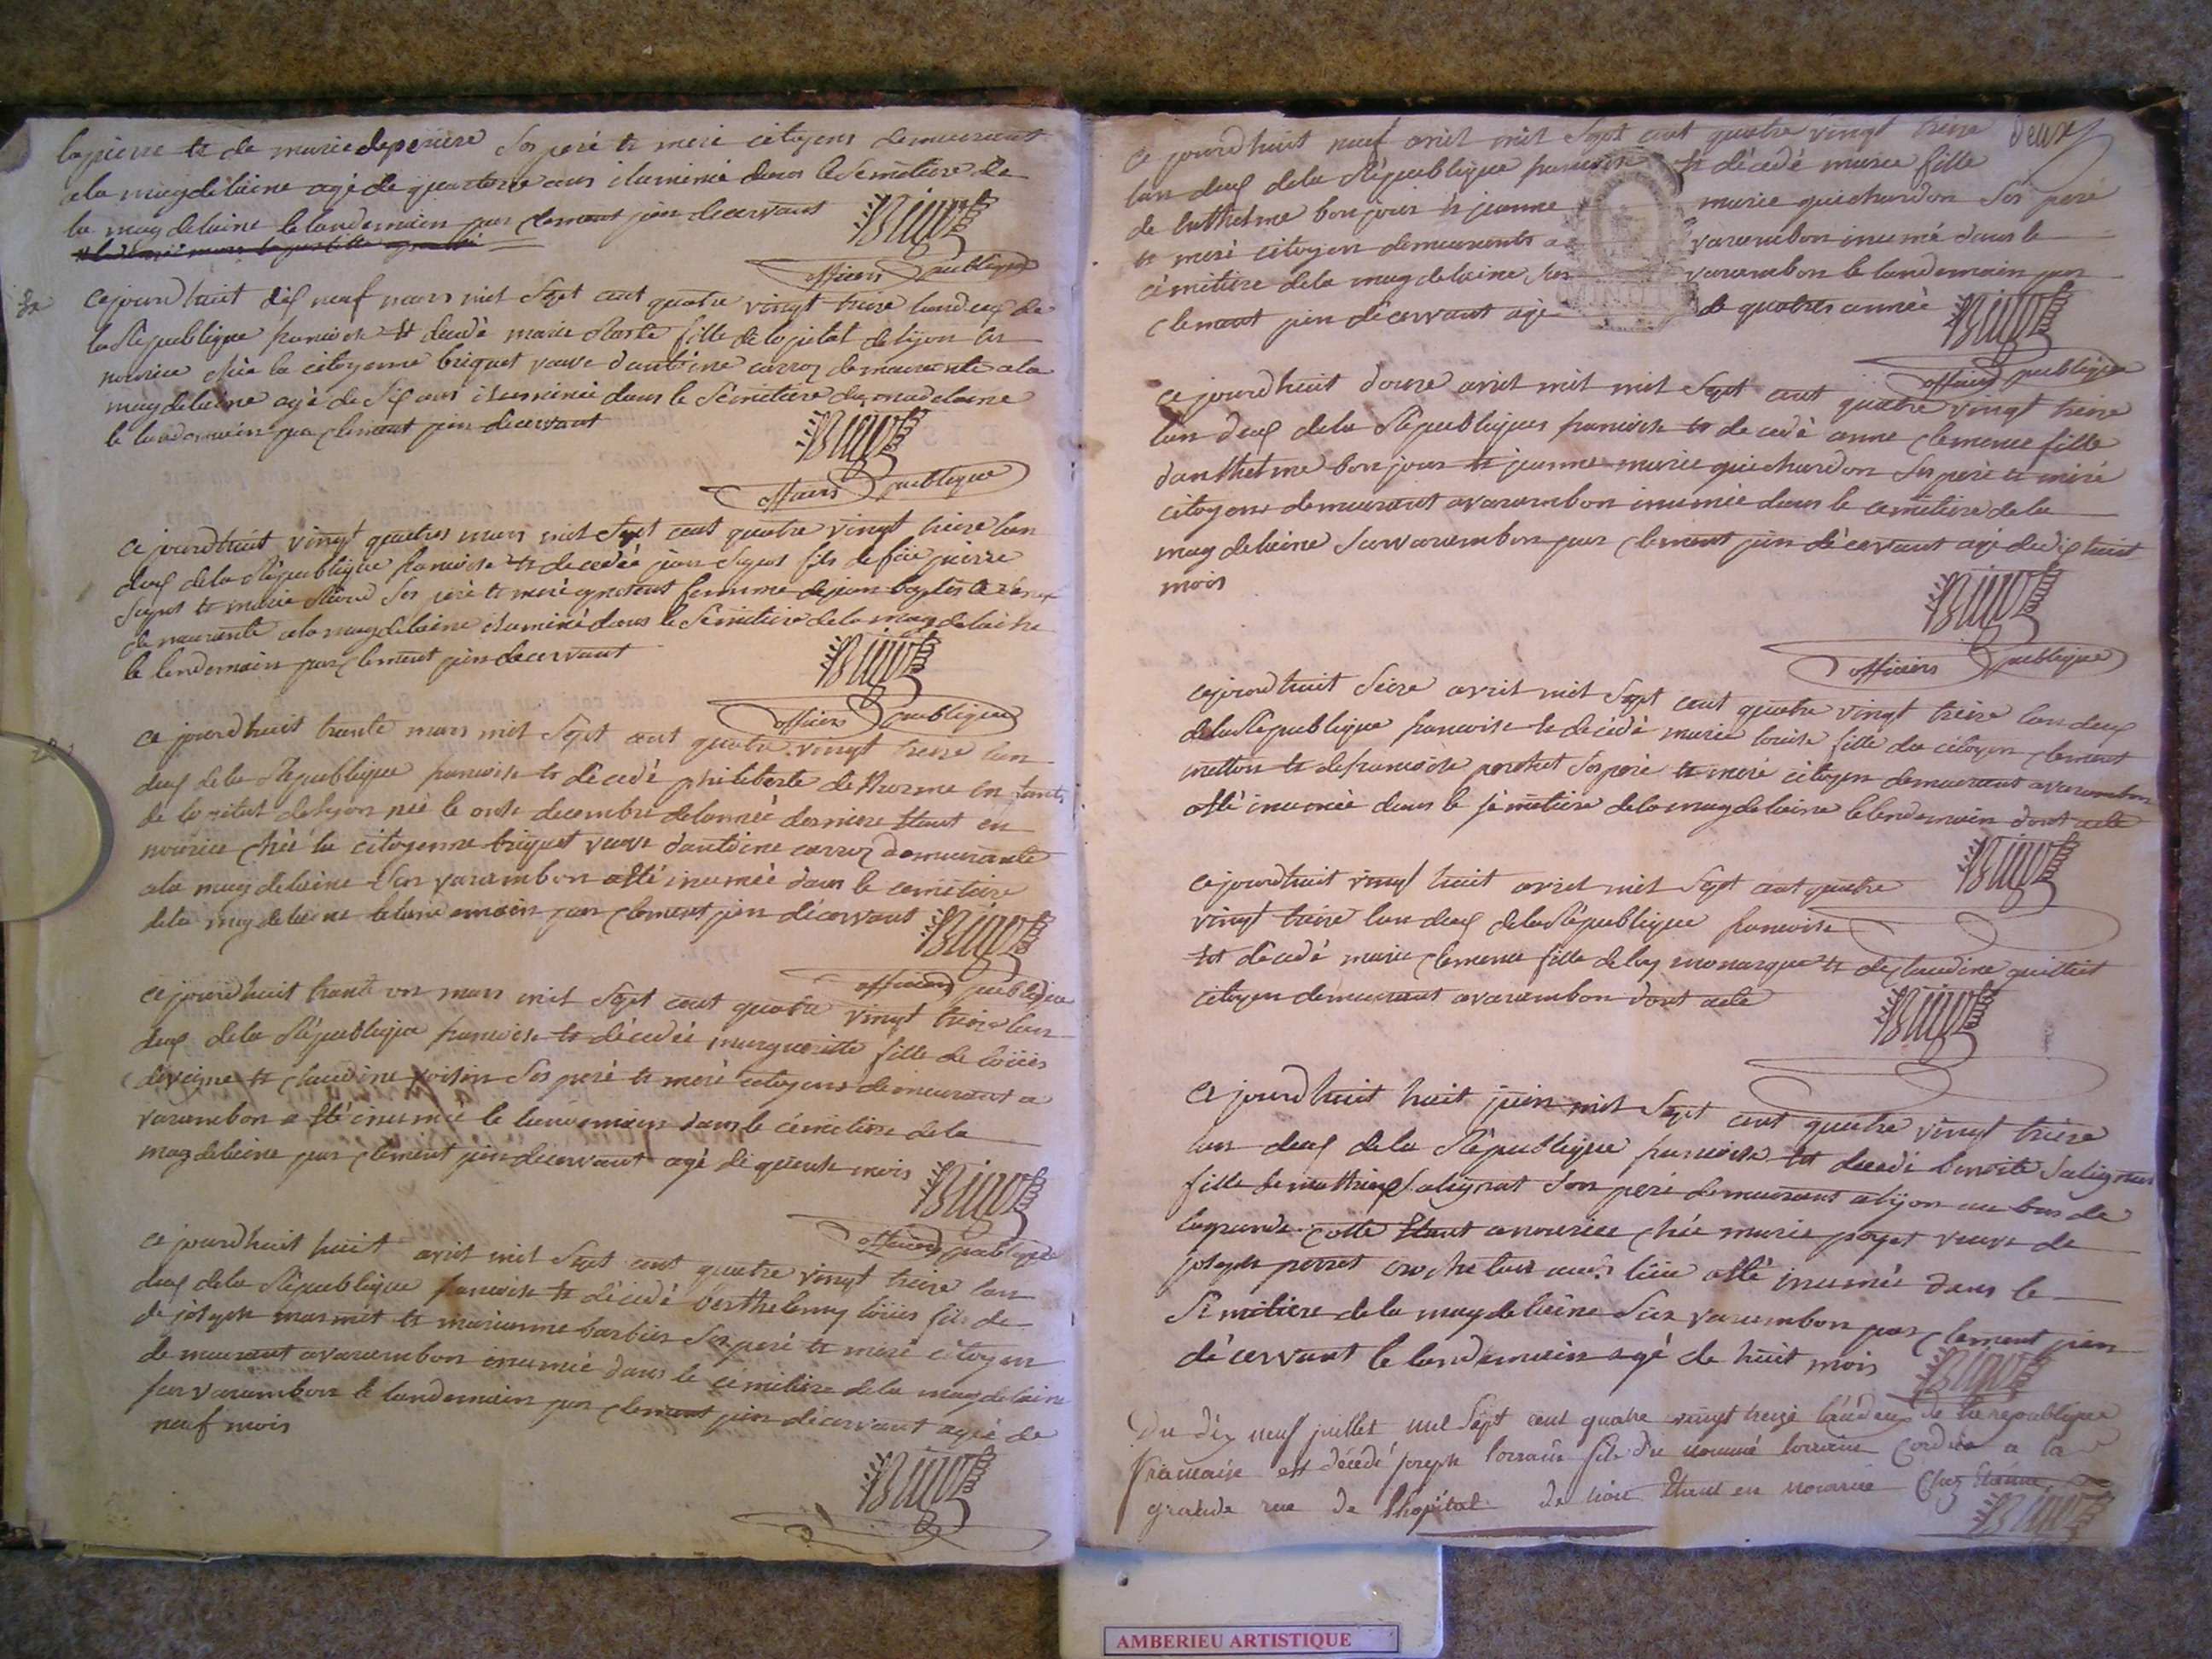 lapierre et de marie deperriere ses peré et meré citoyens demeurant
ala magdelaine agé de quatorze ans inuminé dans le semetiere de
la magdelaine le landemain par clement jien decervant
officiers publique
cejourdhuit dix neuf mars mil sept cent quatre vingt treize landeux de
la Republique francoise et decedé marie fille de lopital de lyon en
nourice chée la citoyenne briquet veuve dantoine carroz demeurente ala
magdelaine agé de six ans inuminé dans le semetiere de madelaine
le landemain par clement jien decervant
officiers publique
ce jourdhuit vingt quatres mars mil sept cent quatre vingt treize lan
deux de la Republique francoise et decedé jean fils de feu pierre
et marie ses peré et meré femme de jean baptiste
demeurente a la magdelaine inuminé dans le semetiere de la magdelaine
le lendemain par clement jien decervant
officiers publique
ce jourdhuit trante mars mil sept cent quatre vingt treize lan
deux de la Republique francoise et décedé philiberte
de lopital de lyon née le onze decembre de lannée derniere étant en
nourice chée la citoyenne briquet veuve dantoine carroz demeurante
ala magdelaine sur varambon a été inumée dans le cemetiere
de la magdelaine le landemain par clement jien décervant
officiers publique
ce jourdhuit trante un mars mil sept cent quatre vingt treize lan
deux de la République francoise et décedé margueritte fille de loüis
deveigne et claudine voisin ses peré et meré citoyens demeurant a
varambon a été inumée le landemain dans le cémetiere de la
magdeleine par clement jien decervant agé de quinze mois
officiers publique
ce jourdhuit huit avril mil sept cent quatre vingt treize lan
deux de la République francoise et décedé berthelemy loüis fils de
de joseph marmet et marianne barbier ses peré et meré citoyen
demeurant a varambon inumée dans le cemetiere de la magdelaine
sur varambon le landemain par clement jien décervant agé de
neuf mois
deux
ce jourdhuit neuf avril mil sept cent quatre vingt treize
lan deux de la République francoise et décedé marie fille
de enthelme bonjour et jeanne marie quichardon ses peré
et meré citoyen demeurants a varambon inumé dans le
cémetiere de la magdelaine sur varambon le landemain par
clement jien décervant agé de quatres année
officiers publique
ce jourdhuit douze avril mil mil sept cent quatre vingt treize
lan deux de la République francoise et decedé anne clemence fille
danthelme bonjour et jeanne marie quichardon ses peré et meré
citoyens demeurant a varambon inumée dans le cemetiere de la
magdeleine sur varambon par clement jien décervant agé de dix huit
mois
officiers publique
cejourdhuit seize avril mil sept cent quatre vingt treize lan deux
de la République francoise et decedé marie louise fille du citoyen clement
metton et de francoise ses peré et meré citoyen demeurant a varambon
a été inumée dans le semetiere de la magdelaine le lendemain dont acte
cejourdhuit vingt huit avril mil sept cent quatre
vingt treize lan deux de la République francoise
est décedé marie clemence fille de monarque et de claudine quilliet
citoyen demeurant a varambon dont acte
ce jourdhuit huit juin mil sept cent quatre vingt treize
lan deux de la République francoise est decedé benoite salignat
fille de mathieu salignat son peré demeurant a lyon au bas de
la grande cotte étant a nourice chée marie payet veuve de
joseph perret lieu a été inumée dans le
semetiere de la magdelaine sur varambon par clement jien
décervant le landemain agé de huit mois
Du dix neuf juillet mil sept cent quatre vingt treize l'an deux de la république
francaise est décedé joseph lorrain fils du nommé lorrain Cordier a la
grande rue de l'hopital de lion étant en nourice Chez
AMBERIEU ARTISTIQUE